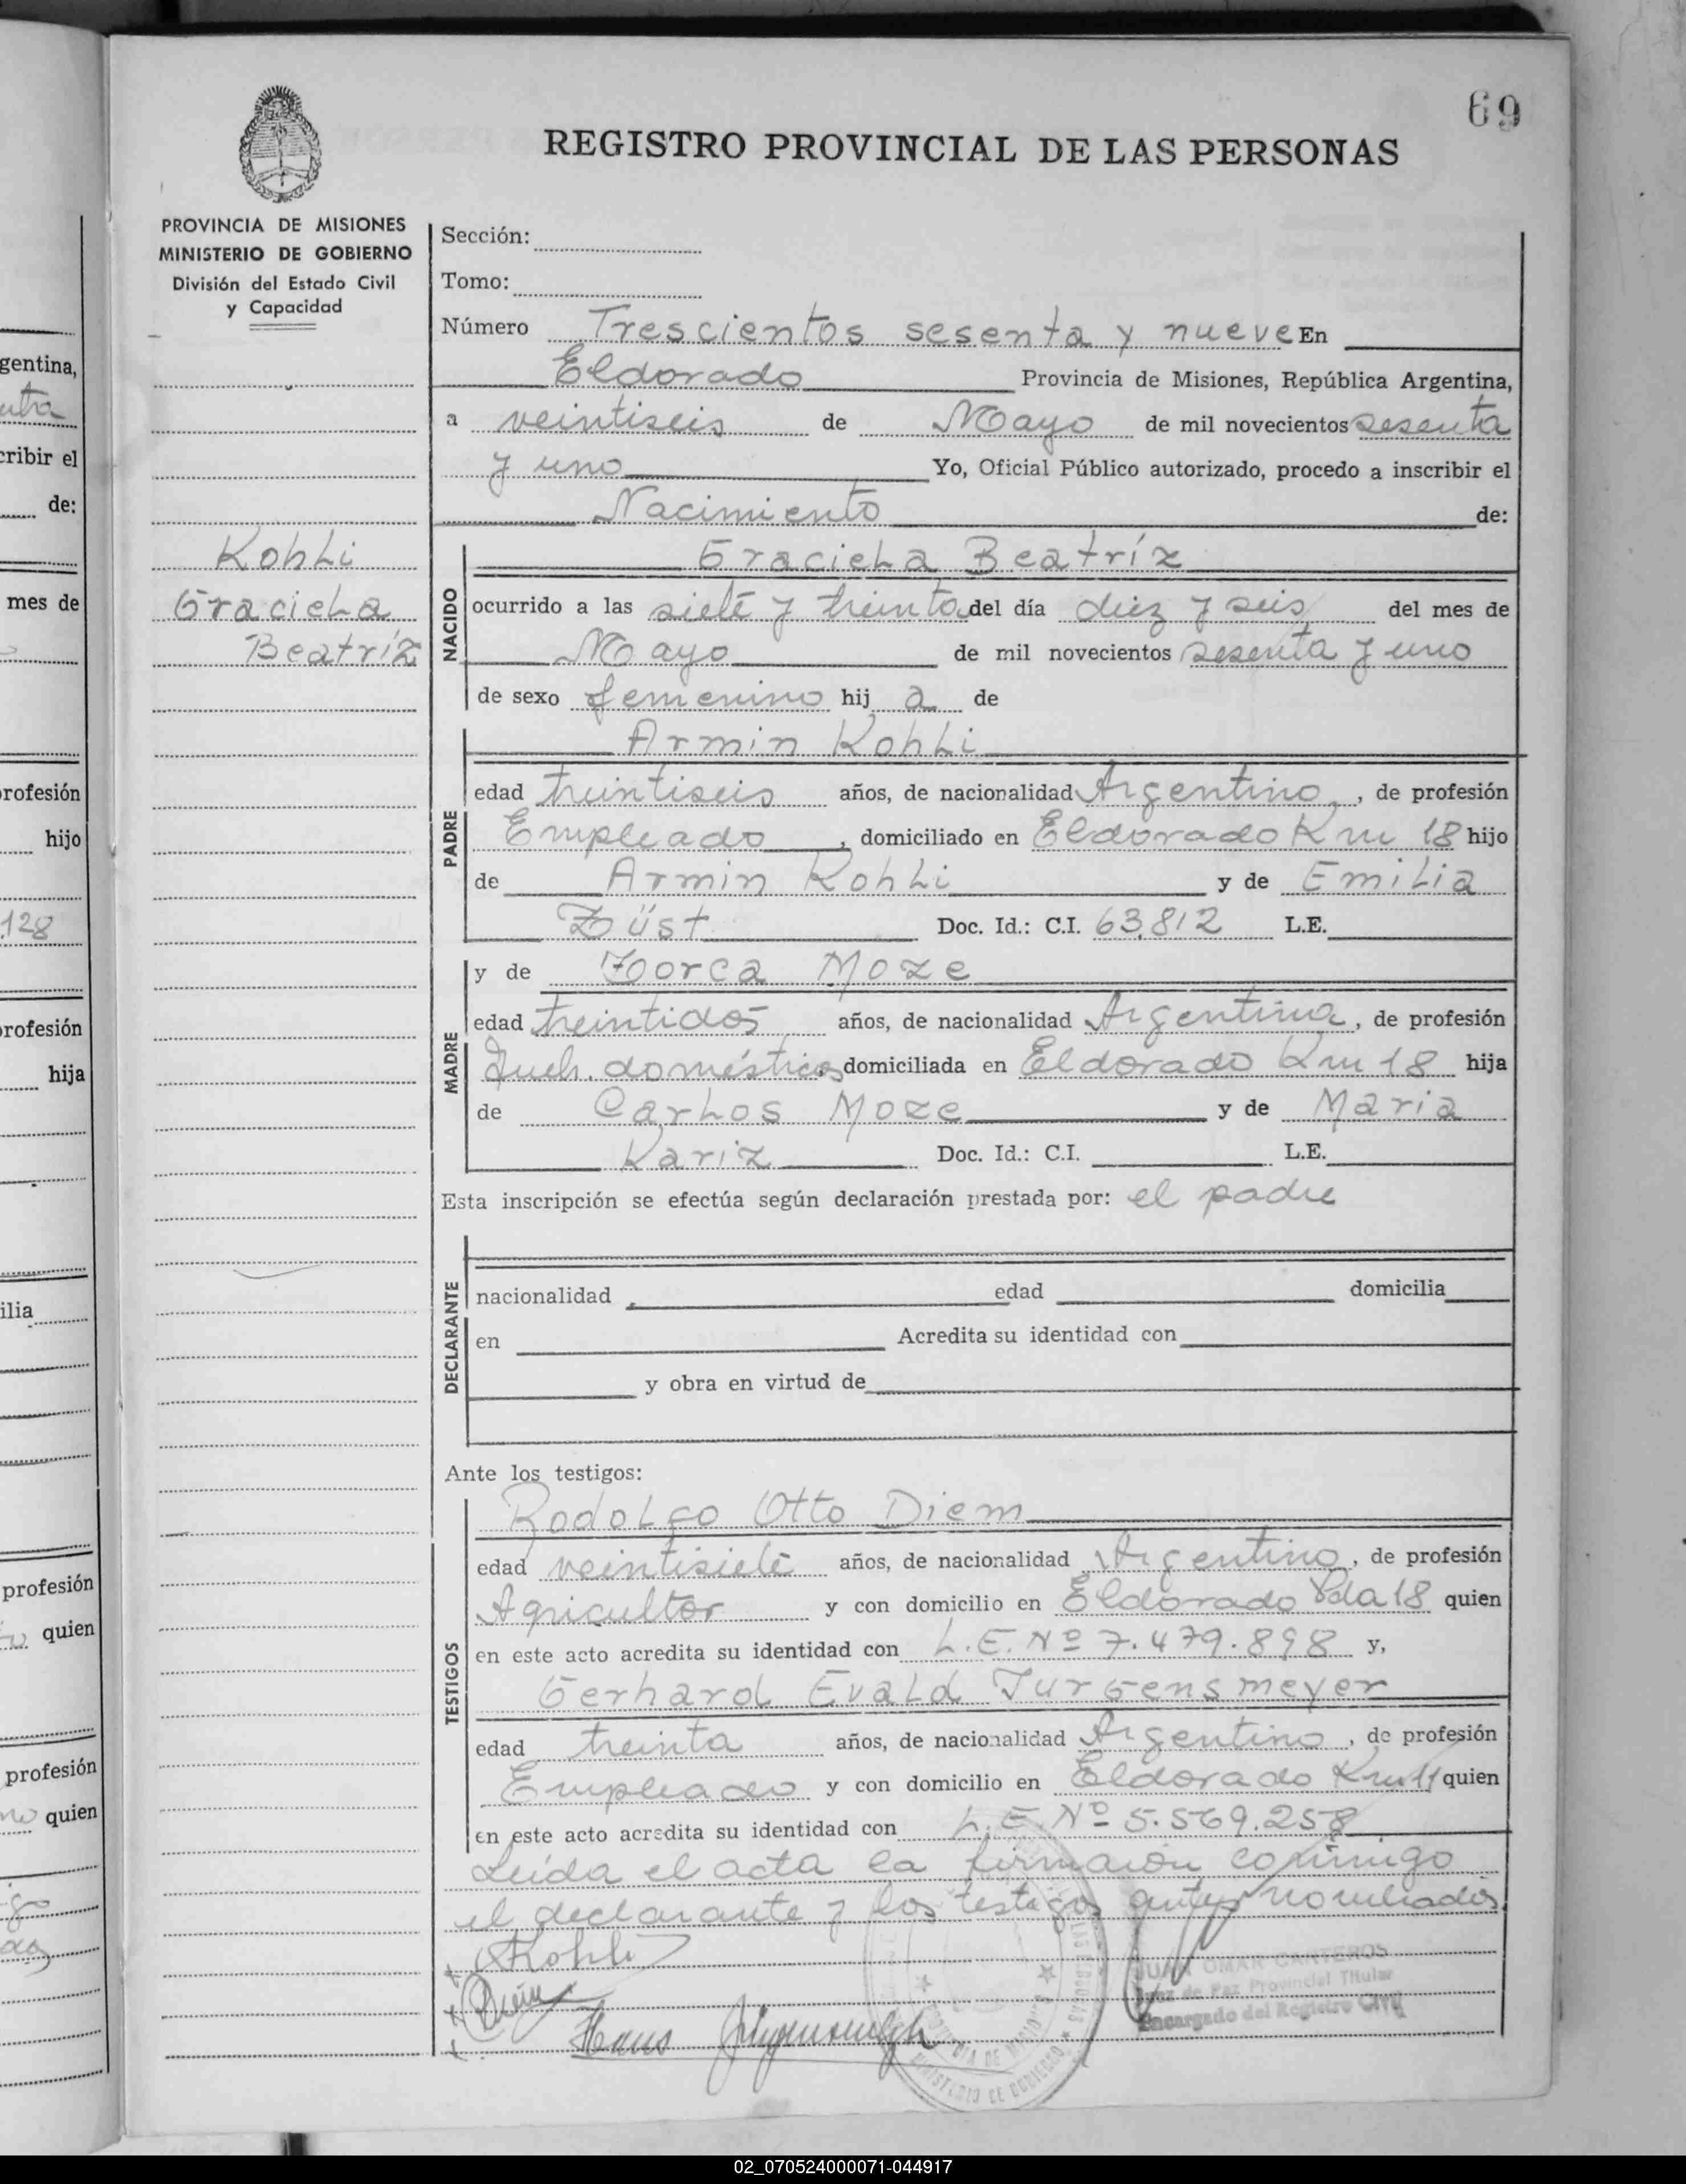 69
REGISTRO PROVINCIAL DE LAS PERSONAS
PROVINCIA DE MISIONES
MINISTERIO DE GOBIERNO
División del Estado Civil
y Capacidad
Kohli
Graciela
Beatríz
Sección:
Tomo:
Número Trescientos sesenta y nueve En
Eldorado Provincia de Misiones, República Argentina,
a veintiseis de Mayo de mil novecientos sesenta
y uno Yo, Oficial Público autorizado, procedo a inscribir el
Nacimiento de:
NACIDO
Graciela Beatríz
ocurrido a las siete y treinta del día diez y seis del mes de
Mayo de mil novecientos sesenta y uno
de sexo femenino hij a de
PADRE
Armin Kohli
edad treintiseis años, de nacionalidad Argentino, de profesión
Empleado, domiciliado en Eldorado Km 18 hijo
de Armin Kohli y de Emilia
Züst Doc. Id.: C.I. 63.812 L.E.
MADRE
y de Zorca Moze
edad treintidos años, de nacionalidad Argentina, de profesión
Queh. domésticos domiciliada en Eldorado Km 18 hija
de Carlos Moze y de Maria
Kariz Doc. Id.: C.I. L.E.
Esta inscripción se efectúa según declaración prestada por: el padre
DECLARANTE
nacionalidad edad domicilia
en Acredita su identidad con
y obra en virtud de
Ante los testigos:
TESTIGOS
Rodolfo Otto Diem
edad veintisiete años, de nacionalidad Argentino, de profesión
Agricultor y con domicilio en Eldorado Pda 18 quien
en este acto acredita su identidad con L.E. Nº 7.479.898 y,
Gerhard Evald Jurgensmeyer
edad treinta años, de nacionalidad Argentino, de profesión
Empleado y con domicilio en Eldorado Km 11 quien
en este acto acredita su identidad con L.E. Nº 5.569.258
Leída el acta la firmaron conmigo
el declarante y los testigos antes nombrados.
Kohli
Diem
Hans
JUAN OMAR CANTEROS
Juez de Paz Provincial Titular
Encargado del Registro Civil
MINISTERIO DE GOBIERNO
gentina,
cribir el
de:
mes de
profesión
hijo
128
profesión
hija
ilia
profesión
quien
profesión
quien
02_070524000071-044917